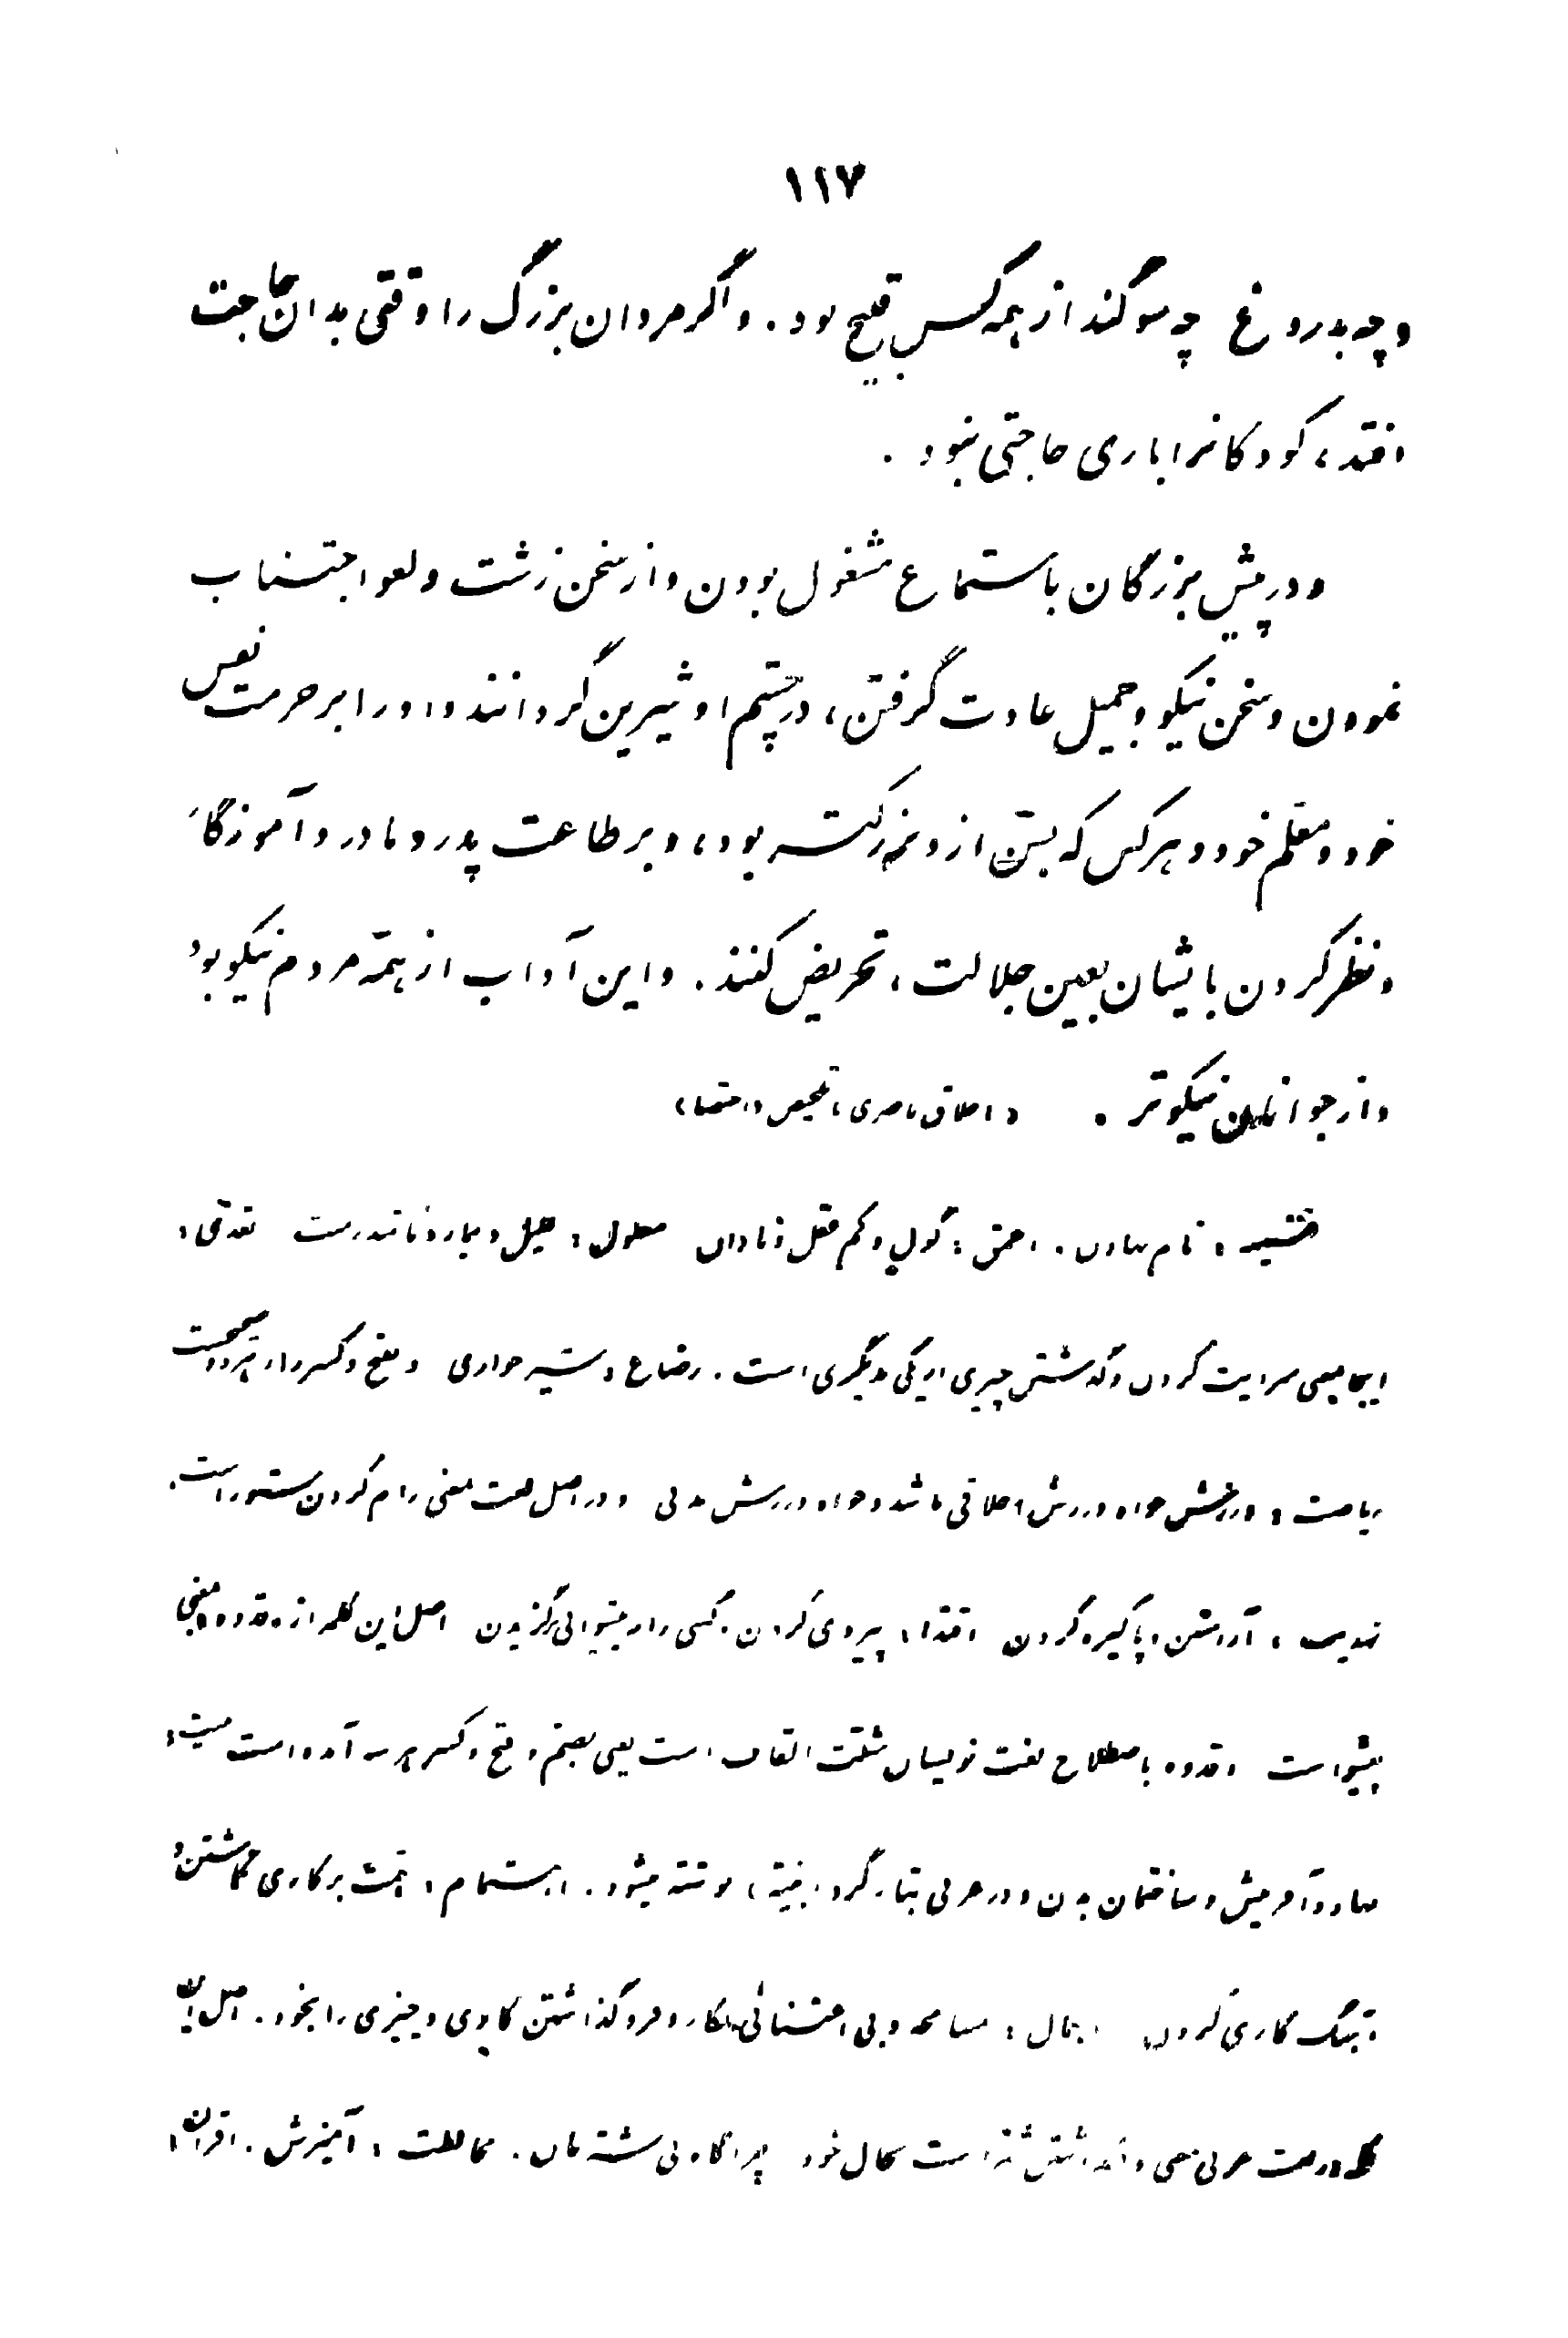 ۱۱۷
و چه بدروغ چه سوگند از همه کس قبیح بود. و اگر مردان بزرگ را وقتی بدان حاجت
افتد، کودکانرا باری حاجتی نبود.
و در پیش بزرگان باستماع مشغول بودن و از سخن زشت و لغو اجتناب
نمودن و سخن نیکو و جمیل عادت گرفتن، در چشم او شیرین گردانند و او را بر حرمت نفس
خود و معلم خود و هر کس که بسن از و بزرگتر بود، و بر طاعت پدر و مادر و آموزگار
و نظر کردن بایشان بعین جلالت، تحریض کنند. و این آداب از همه مردم نیکو بود
و از جوانان نیکوتر. (اخلاق ناصری، تلخیص و اختصار)
نام نهادن. احمق: گول و کم عقل و نادان معلول: علیل و بیمار و نا تندرست تعدی:
اینجا بمعنی سرایت کردن و گذشتن چیزی از یکی بدیگری است. رضاع: شیرخواری و بفتح و کسر راء هر دو صحیحست
ریاضت: ورزش خواه ورزش اخلاقی باشد و خواه ورزش بدنی و در اصل لغت بمعنی رام کردن ستور است.
تهذیب: آراستن و پاکیزه کردن اقتدا: پیروی کردن و کسی را به پیشوائی برگزیدن اصل این کلمه از قدوه بمعنی
پیشواست و قدوه باصطلاح لغت نویسان مثلث القاف است یعنی بضم و فتح و کسر هر سه آمده است
نهاد و آفرینش و ساختمان بدن و در عربی بتاء گرد (بنیة) نوشته میشود. اهتمام: همت بر کاری گماشتن و
آهنگ کاری کردن اهمال: مسامحه و بی اعتنائی بکار و فرو گذاشتن کاری و چیزی را بخود. اصل این
در لغت عربی بمعنی وا گذاشتن شتر است بحال خود چراگاه بی شتربان. مخالطت: آمیزش. اقران: